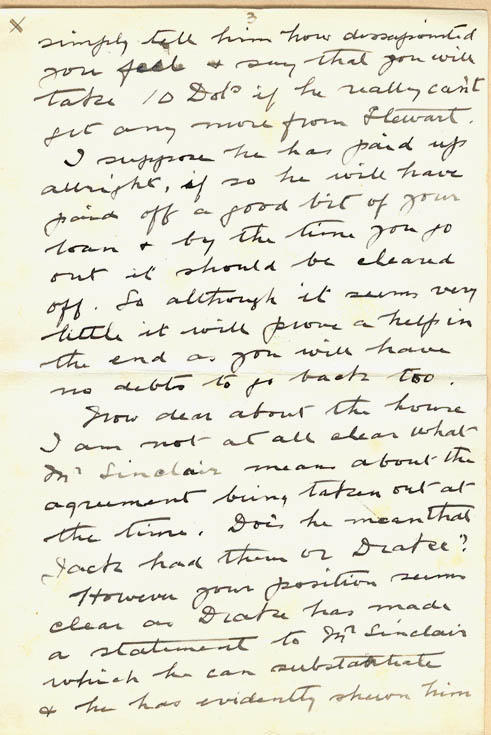 X 3
simply tell him how dissapointed
you feel & say that you will
take 10 Dols if he really can't
get any more from Stewart.
I suppose he has paid up
allright, if so he will have
paid off a good bit of your
loan & by the time you go
out it should be cleared
off. So although it seems very
little it will prove a help in
the end as you will have
no debts to go back too.
Now dear about the house
I am not at all clear what
Mr Sinclair means about the
agreement being taken out at
the time. Does he mean that
Jack had them or Drake?
However your position seems
clear as Drake has made
a statement to Mr Sinclair
which he can substantiate
& he has evidently shewn him